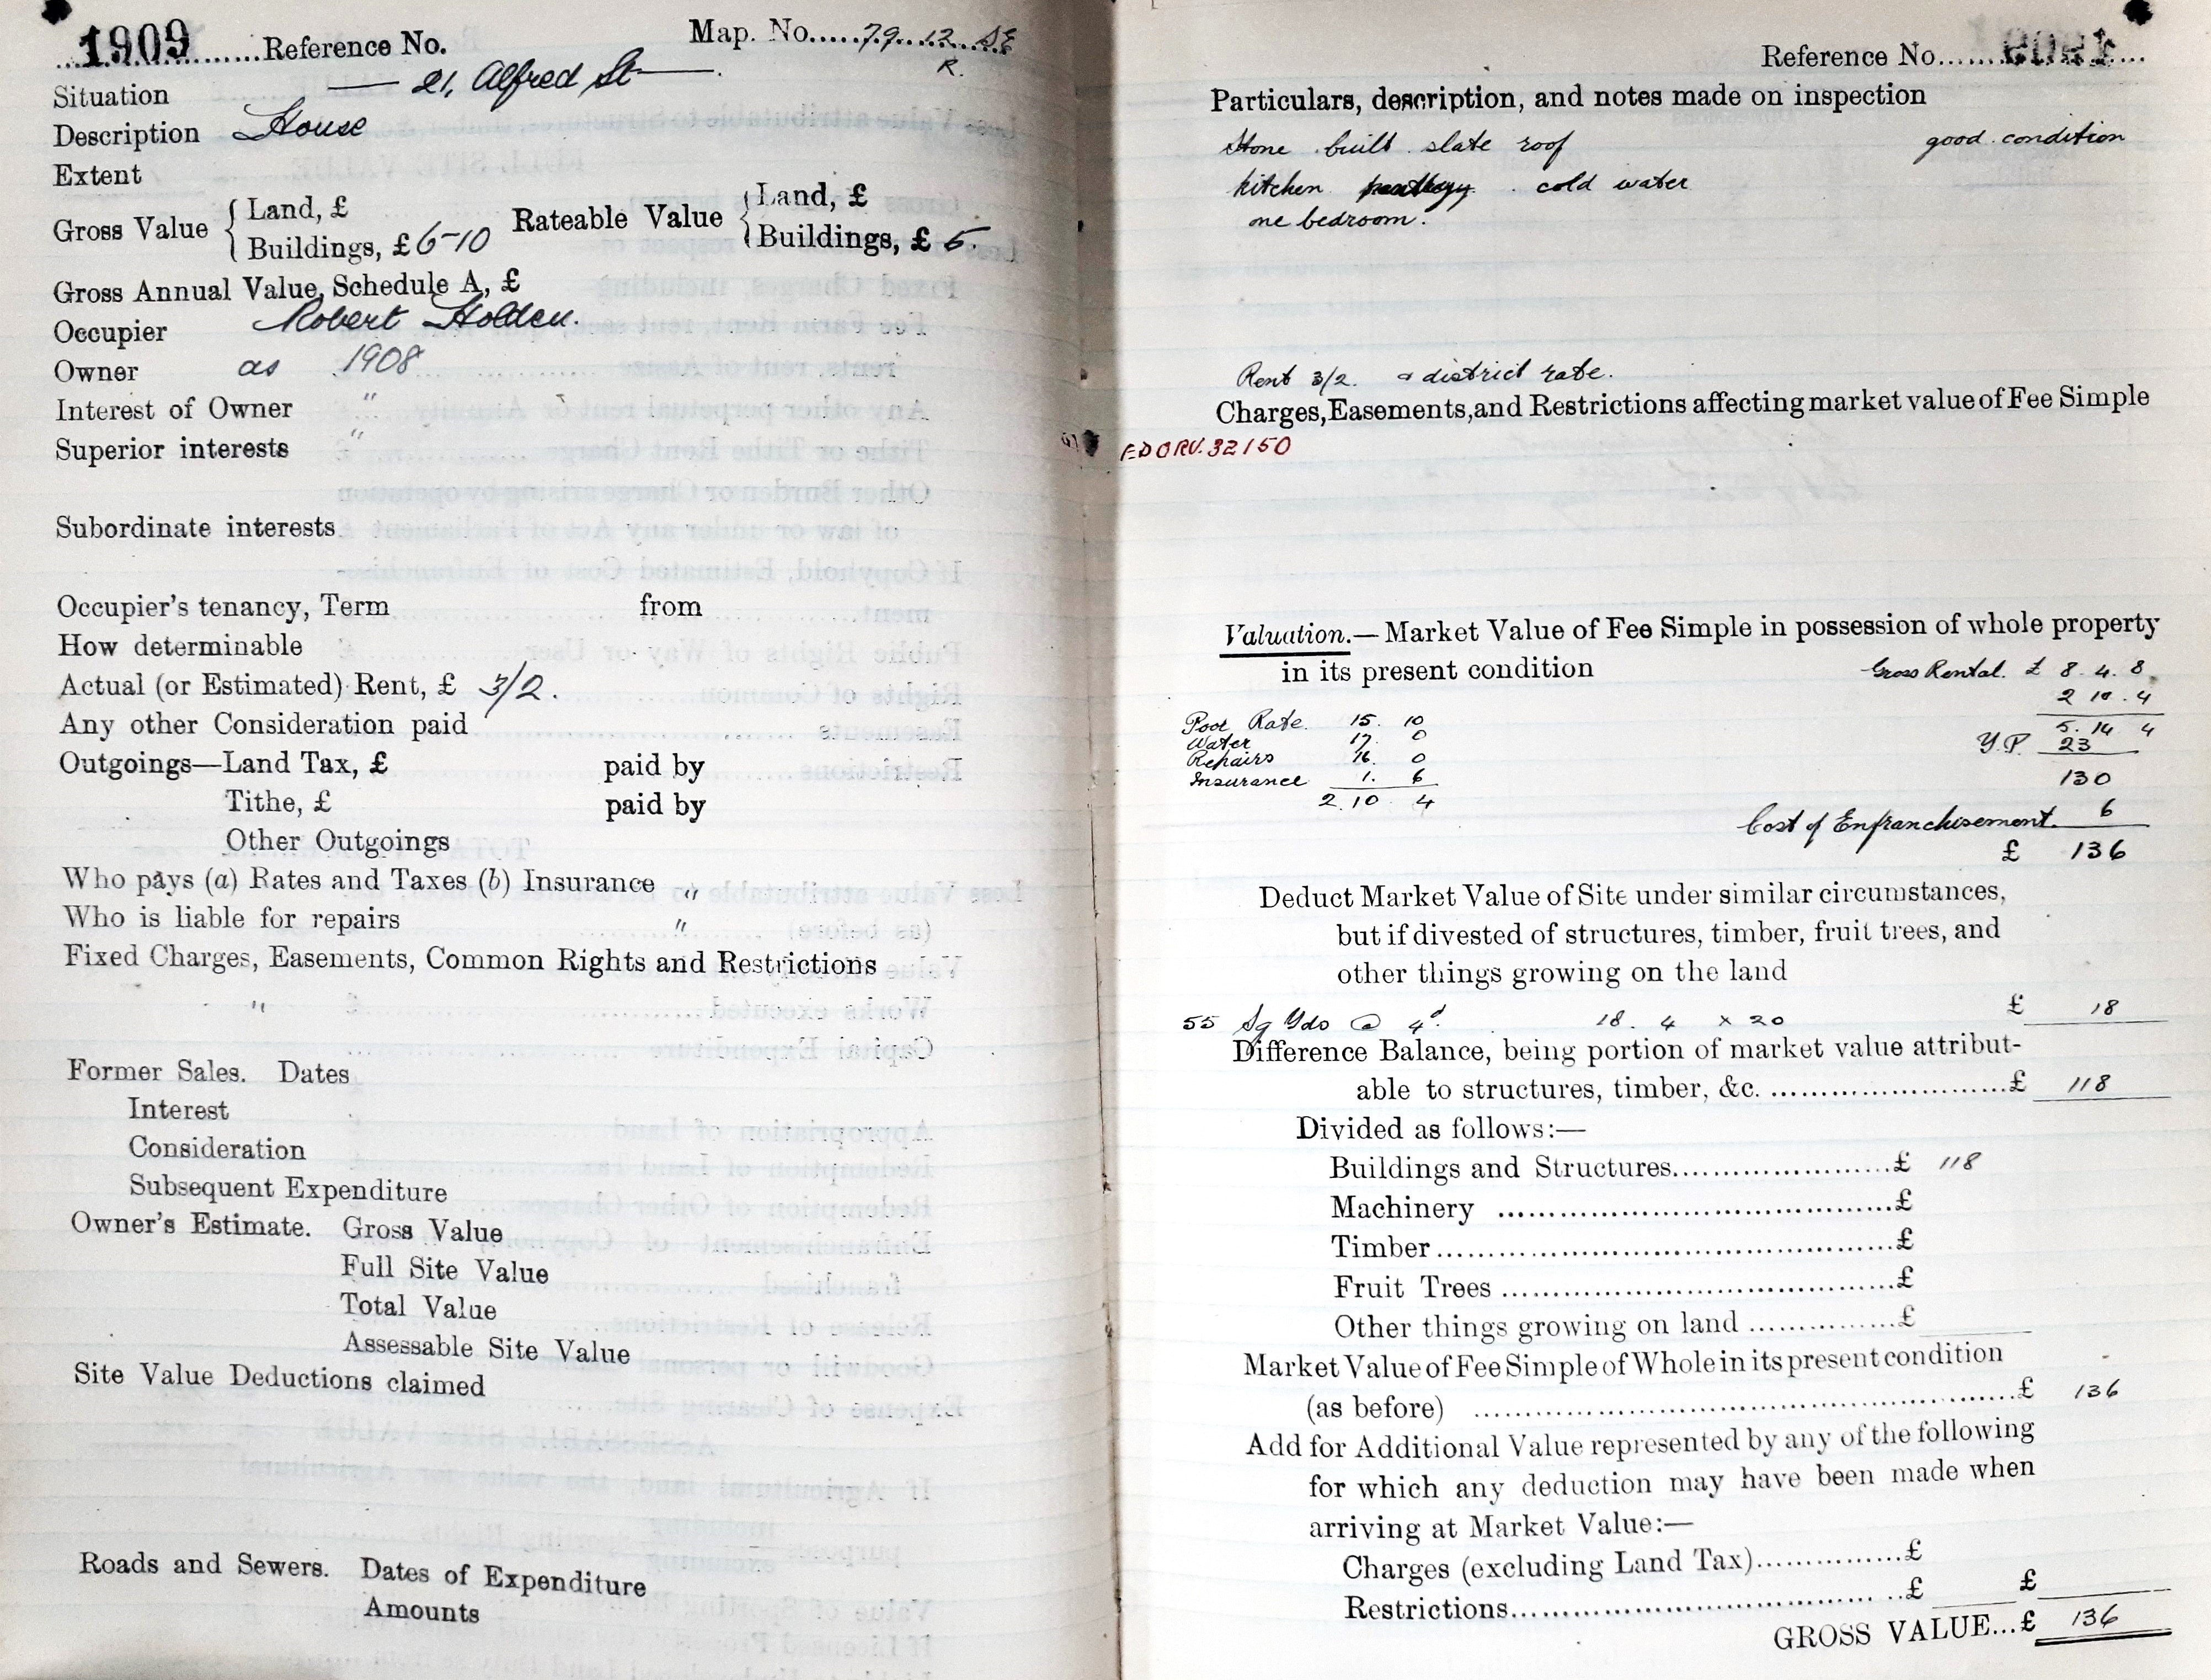 1909 Reference No. Map. No. 79. 12. SE
R.
Situation — 21, Alfred St —
Description House
Extent
Gross Value { Land, £
Buildings, £ 6-10
Rateable Value { Land, £
Buildings, £ 5.
Gross Annual Value, Schedule A, £
Occupier Robert Holden.
Owner as 1908
Interest of Owner "
Superior interests "
Subordinate interests
Occupier's tenancy, Term from
How determinable
Actual (or Estimated) Rent, £ 3/2.
Any other Consideration paid
Outgoings—Land Tax, £ paid by
Tithe, £ paid by
Other Outgoings
Who pays (a) Rates and Taxes (b) Insurance "
Who is liable for repairs "
Fixed Charges, Easements, Common Rights and Restrictions
"
Former Sales. Dates
Interest
Consideration
Subsequent Expenditure
Owner's Estimate. Gross Value
Full Site Value
Total Value
Assessable Site Value
Site Value Deductions claimed
Roads and Sewers. Dates of Expenditure
Amounts
Reference No.
Particulars, description, and notes made on inspection
Stone built slate roof good condition
kitchen cold water
one bedroom.
Rent 3/2. & district rate.
Charges, Easements, and Restrictions affecting market value of Fee Simple
32150
Valuation.— Market Value of Fee Simple in possession of whole property
in its present condition
Gross Rental. £ 8. 4. 8.
2 10. 4
5. 14 4
Y.P. 23
130
Cost of Enfranchisement. 6
£ 136
Poor Rate. 15. 10
Water 17. 0
Repairs 16. 0
Insurance 1. 6
2. 10. 4
Deduct Market Value of Site under similar circumstances,
but if divested of structures, timber, fruit trees, and
other things growing on the land
55 Sq Yds @ 4d. 18. 4 x 20 £ 18
Difference Balance, being portion of market value attribut-
able to structures, timber, &c. £ 118
Divided as follows:—
Buildings and Structures £ 118
Machinery £
Timber £
Fruit Trees £
Other things growing on land £
Market Value of Fee Simple of Whole in its present condition
(as before) £ 136
Add for Additional Value represented by any of the following
for which any deduction may have been made when
arriving at Market Value:—
Charges (excluding Land Tax) £
Restrictions £ £
GROSS VALUE...£ 136